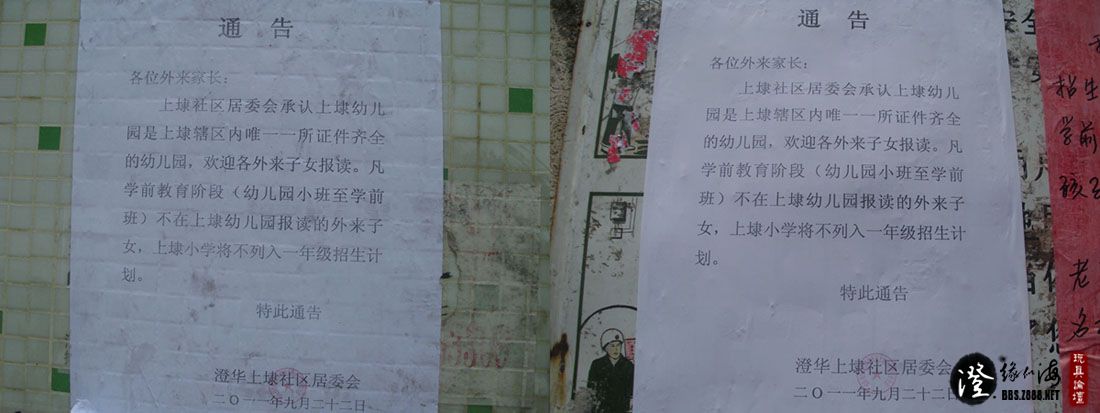 通 告
各位外来家长：
上埭社区居委会承认上埭幼儿
园是上埭辖区内唯一一所证件齐全
的幼儿园，欢迎各外来子女报读。凡
学前教育阶段（幼儿园小班至学前
班）不在上埭幼儿园报读的外来子
女，上埭小学将不列入一年级招生计
划。
特此通告
澄华上埭社区居委会
二〇一一年九月二十二日
通 告
各位外来家长：
上埭社区居委会承认上埭幼儿
园是上埭辖区内唯一一所证件齐全
的幼儿园，欢迎各外来子女报读。凡
学前教育阶段（幼儿园小班至学前
班）不在上埭幼儿园报读的外来子
女，上埭小学将不列入一年级招生计
划。
特此通告
澄华上埭社区居委会
二〇一一年九月二十二日
全
招生
学前
孩
老
名
澄缘以海
BBS.Z888.NET
玩具論壇